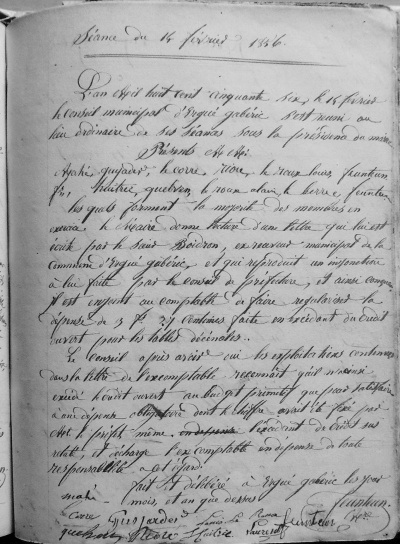 Séance du 15 février 1856.
L'an mil huit cent cinquante six, le 15 février
le conseil municipal d'Ergué gabéric s'est réuni au
lieu ordinaire de ses séances sous la présidence du maire
Présents M. M.
Mahé, guyader, le corre, Rior, le roux louis, feunteun
fr, Nautric, quelven, le roux alain, le berre, feunteun
les quels forment la majorité des membres en
exercice. le Maire donne lecture d'une lettre qui lui est
écrite par le Sieur Boidron, ex receveur municipal de la
Commune d'Ergué gabéric, et qui reproduit un injonction
à lui faite par le conseil de préfecture, et ainsi conçue
Il est enjoint au comptable de faire régulariser la
dépense de 3 fr 27 centimes faite en excédant du crédit
ouvert pour les tables décénales.
Le Conseil après avoir oui les explications contenues
dans la lettre de l'excomptable reconnaît qu'il n'a
excédé le crédit ouvert au budget primitif que pour satisfaire
à une dépense obligatoire dont le chiffre avait été fixé par
Mr le préfet même, l'excédent de crédit sus
relaté, et décharge l'excomptable en dépense de toute
responsabilité à cet égard.
fait et délibéré à Ergué gabéric les jour
mois, et an que dessus
mahé feunteun
Corre Guyader Louis Le Roux feunteun